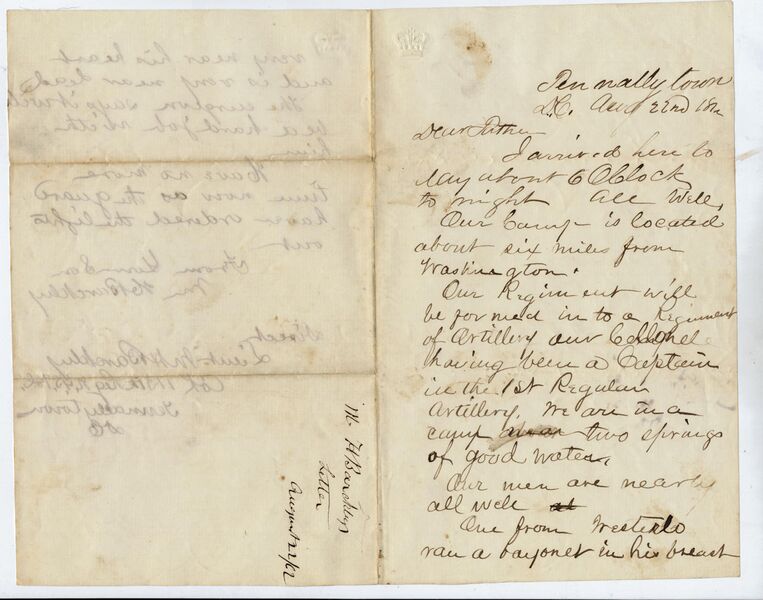 Pennallytown
D.C. Aug 22nd 1862
Dear Father
I arrived here to
day about 6 OClock
to night all Well,
Our Camp is located
about six miles from
Washington.
Our Regiment will
be formed in to a Regiment
of Artillery our Collonel
having been a Captain
in the 1st Regular
Artillery. We are in a
camp near two springs
of good water,
Our men are nearly
all well at
One from Westerlo
ran a bayonet in his breast
M. H Barckleys
Letter
August 22/62
very near his heart
and is very near dead
the surgeon says it will
be a hard job with
him
Have no more
time now as the guard
have ordered the lights
out
From your Son
M H Barckley
Direct
Lieut M H Barckley
D C